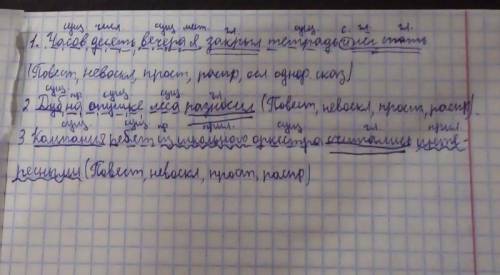 сущ числ сущ мест. гл. сущ. с. гл. гл.
1. Часов десять, вечера я закрыл тетрадь и лег спать
(Повест, невоскл, прост, распр, осл однор. сказ)
сущ. пр. сущ гл.
2 Дуб на опушке леса развесист (Повест, невоскл, прост, распр)
сущ сущ. пр прил. сущ гл. прил.
3 Компания ребят из школьного оркестра считалась инте-
ресными (Повест, невоскл, прост, распр)